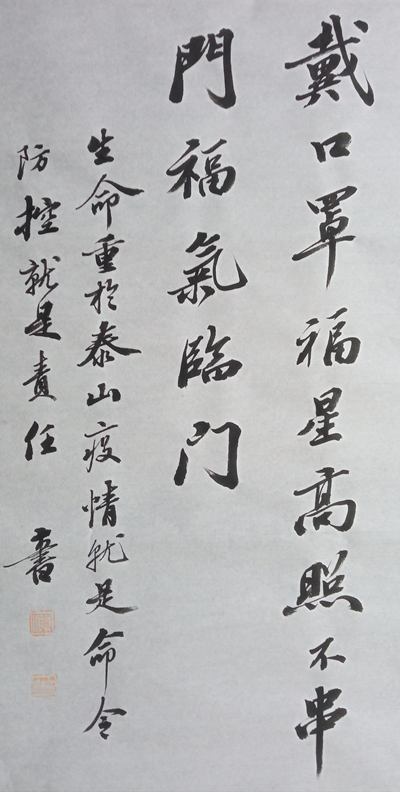 戴口罩福星高照不串
門福氣臨门
生命重於泰山疫情就是命令
防控就是責任
書